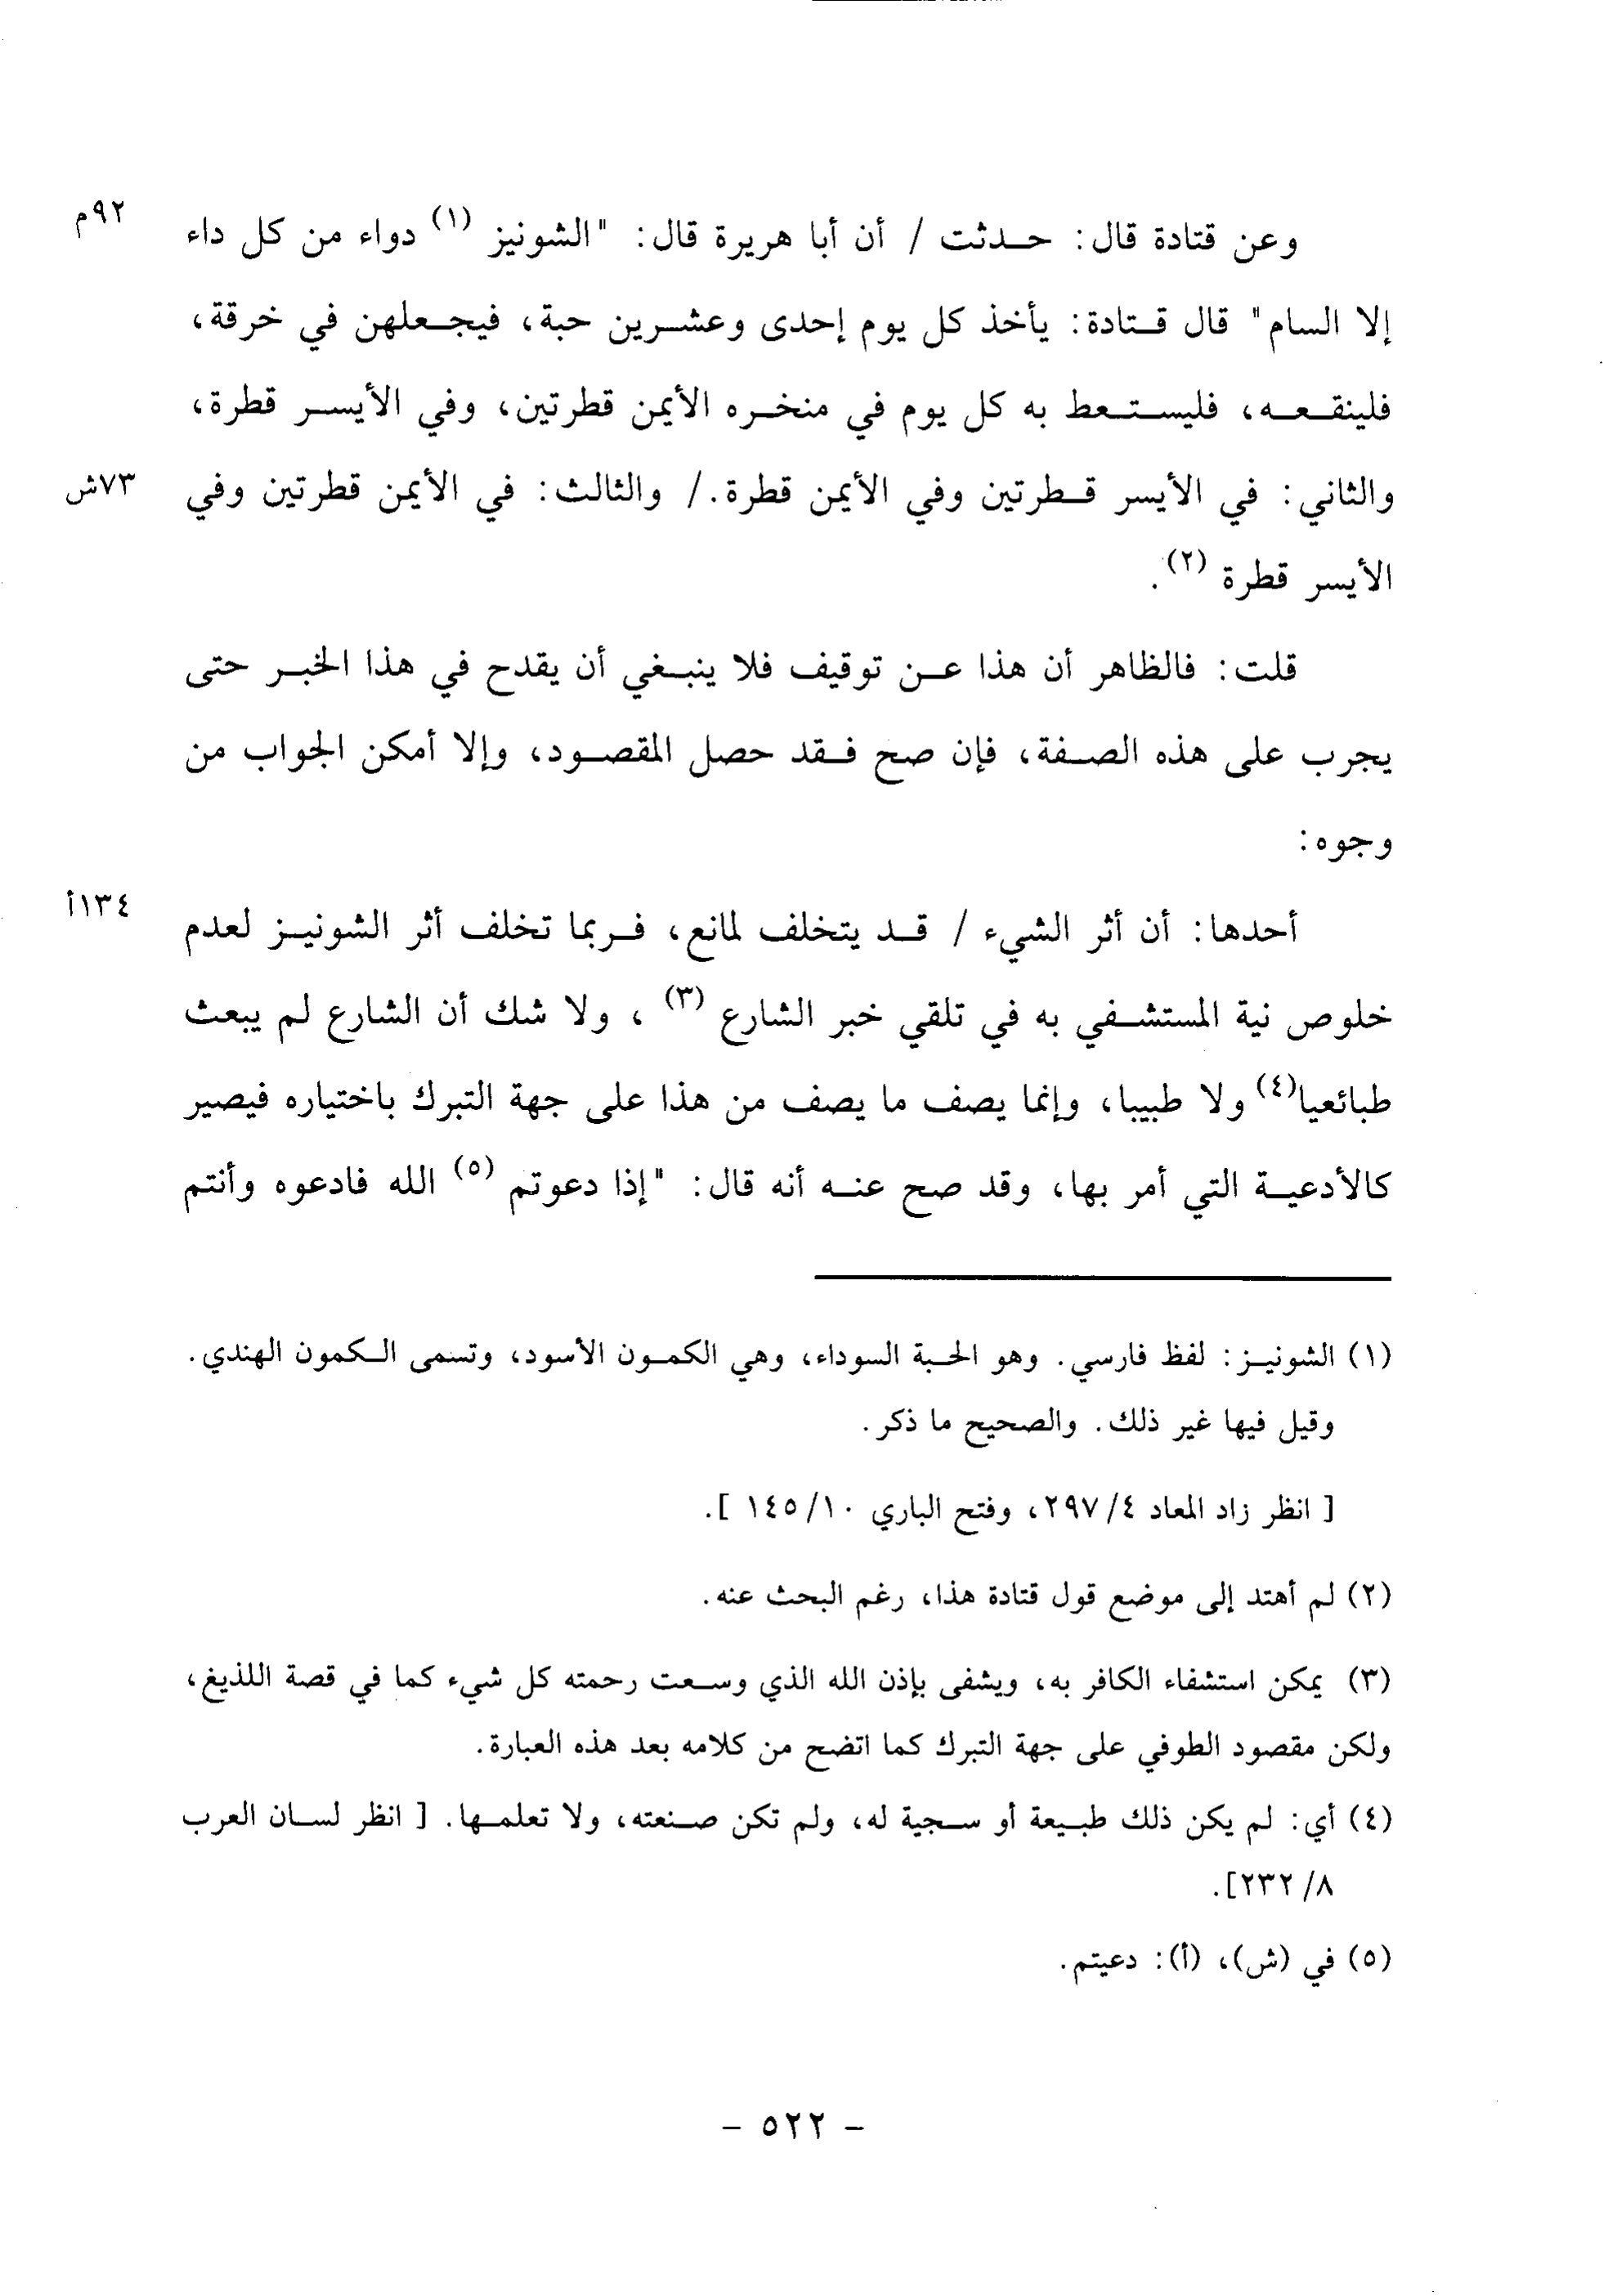 وعن قتادة قال: حدثت / أن أبا هريرة قال: "الشونيز (١) دواء من كل داء
٩٢م
إلا السام" قال قتادة: يأخذ كل يوم إحدى وعشرين حبة، فيجعلهن في خرقة،
فلينقعه، فليستعط به كل يوم في منخره الأيمن قطرتين، وفي الأيسر قطرة،
والثاني: في الأيسر قطرتين وفي الأيمن قطرة./ والثالث: في الأيمن قطرتين وفي
٧٣ش
الأيسر قطرة (٢).
قلت: فالظاهر أن هذا عن توقيف فلا ينبغي أن يقدح في هذا الخبر حتى
يجرب على هذه الصفة، فإن صح فقد حصل المقصود، وإلا أمكن الجواب من
وجوه:
أحدها: أن أثر الشيء / قد يتخلف لمانع، فربما تخلف أثر الشونيز لعدم
١٣٤أ
خلوص نية المستشفي به في تلقي خبر الشارع (٣) ، ولا شك أن الشارع لم يبعث
طبائعيا(٤) ولا طبيبا، وإنما يصف ما يصف من هذا على جهة التبرك باختياره فيصير
كالأدعية التي أمر بها، وقد صح عنه أنه قال: "إذا دعوتم (٥) الله فادعوه وأنتم
(١) الشونيز: لفظ فارسي. وهو الحبة السوداء، وهي الكمون الأسود، وتسمى الكمون الهندي.
وقيل فيها غير ذلك. والصحيح ما ذكر.
[ انظر زاد المعاد ٤/ ٢٩٧، وفتح الباري ١٠/ ١٤٥ ].
(٢) لم أهتد إلى موضع قول قتادة هذا، رغم البحث عنه.
(٣) يمكن استشفاء الكافر به، ويشفى بإذن الله الذي وسعت رحمته كل شيء كما في قصة اللذيغ،
ولكن مقصود الطوفي على جهة التبرك كما اتضح من كلامه بعد هذه العبارة.
(٤) أي: لم يكن ذلك طبيعة أو سجية له، ولم تكن صنعته، ولا تعلمها. [ انظر لسان العرب
٨/ ٢٣٢].
(٥) في (ش)، (أ): دعيتم.
- ٥٢٢ -